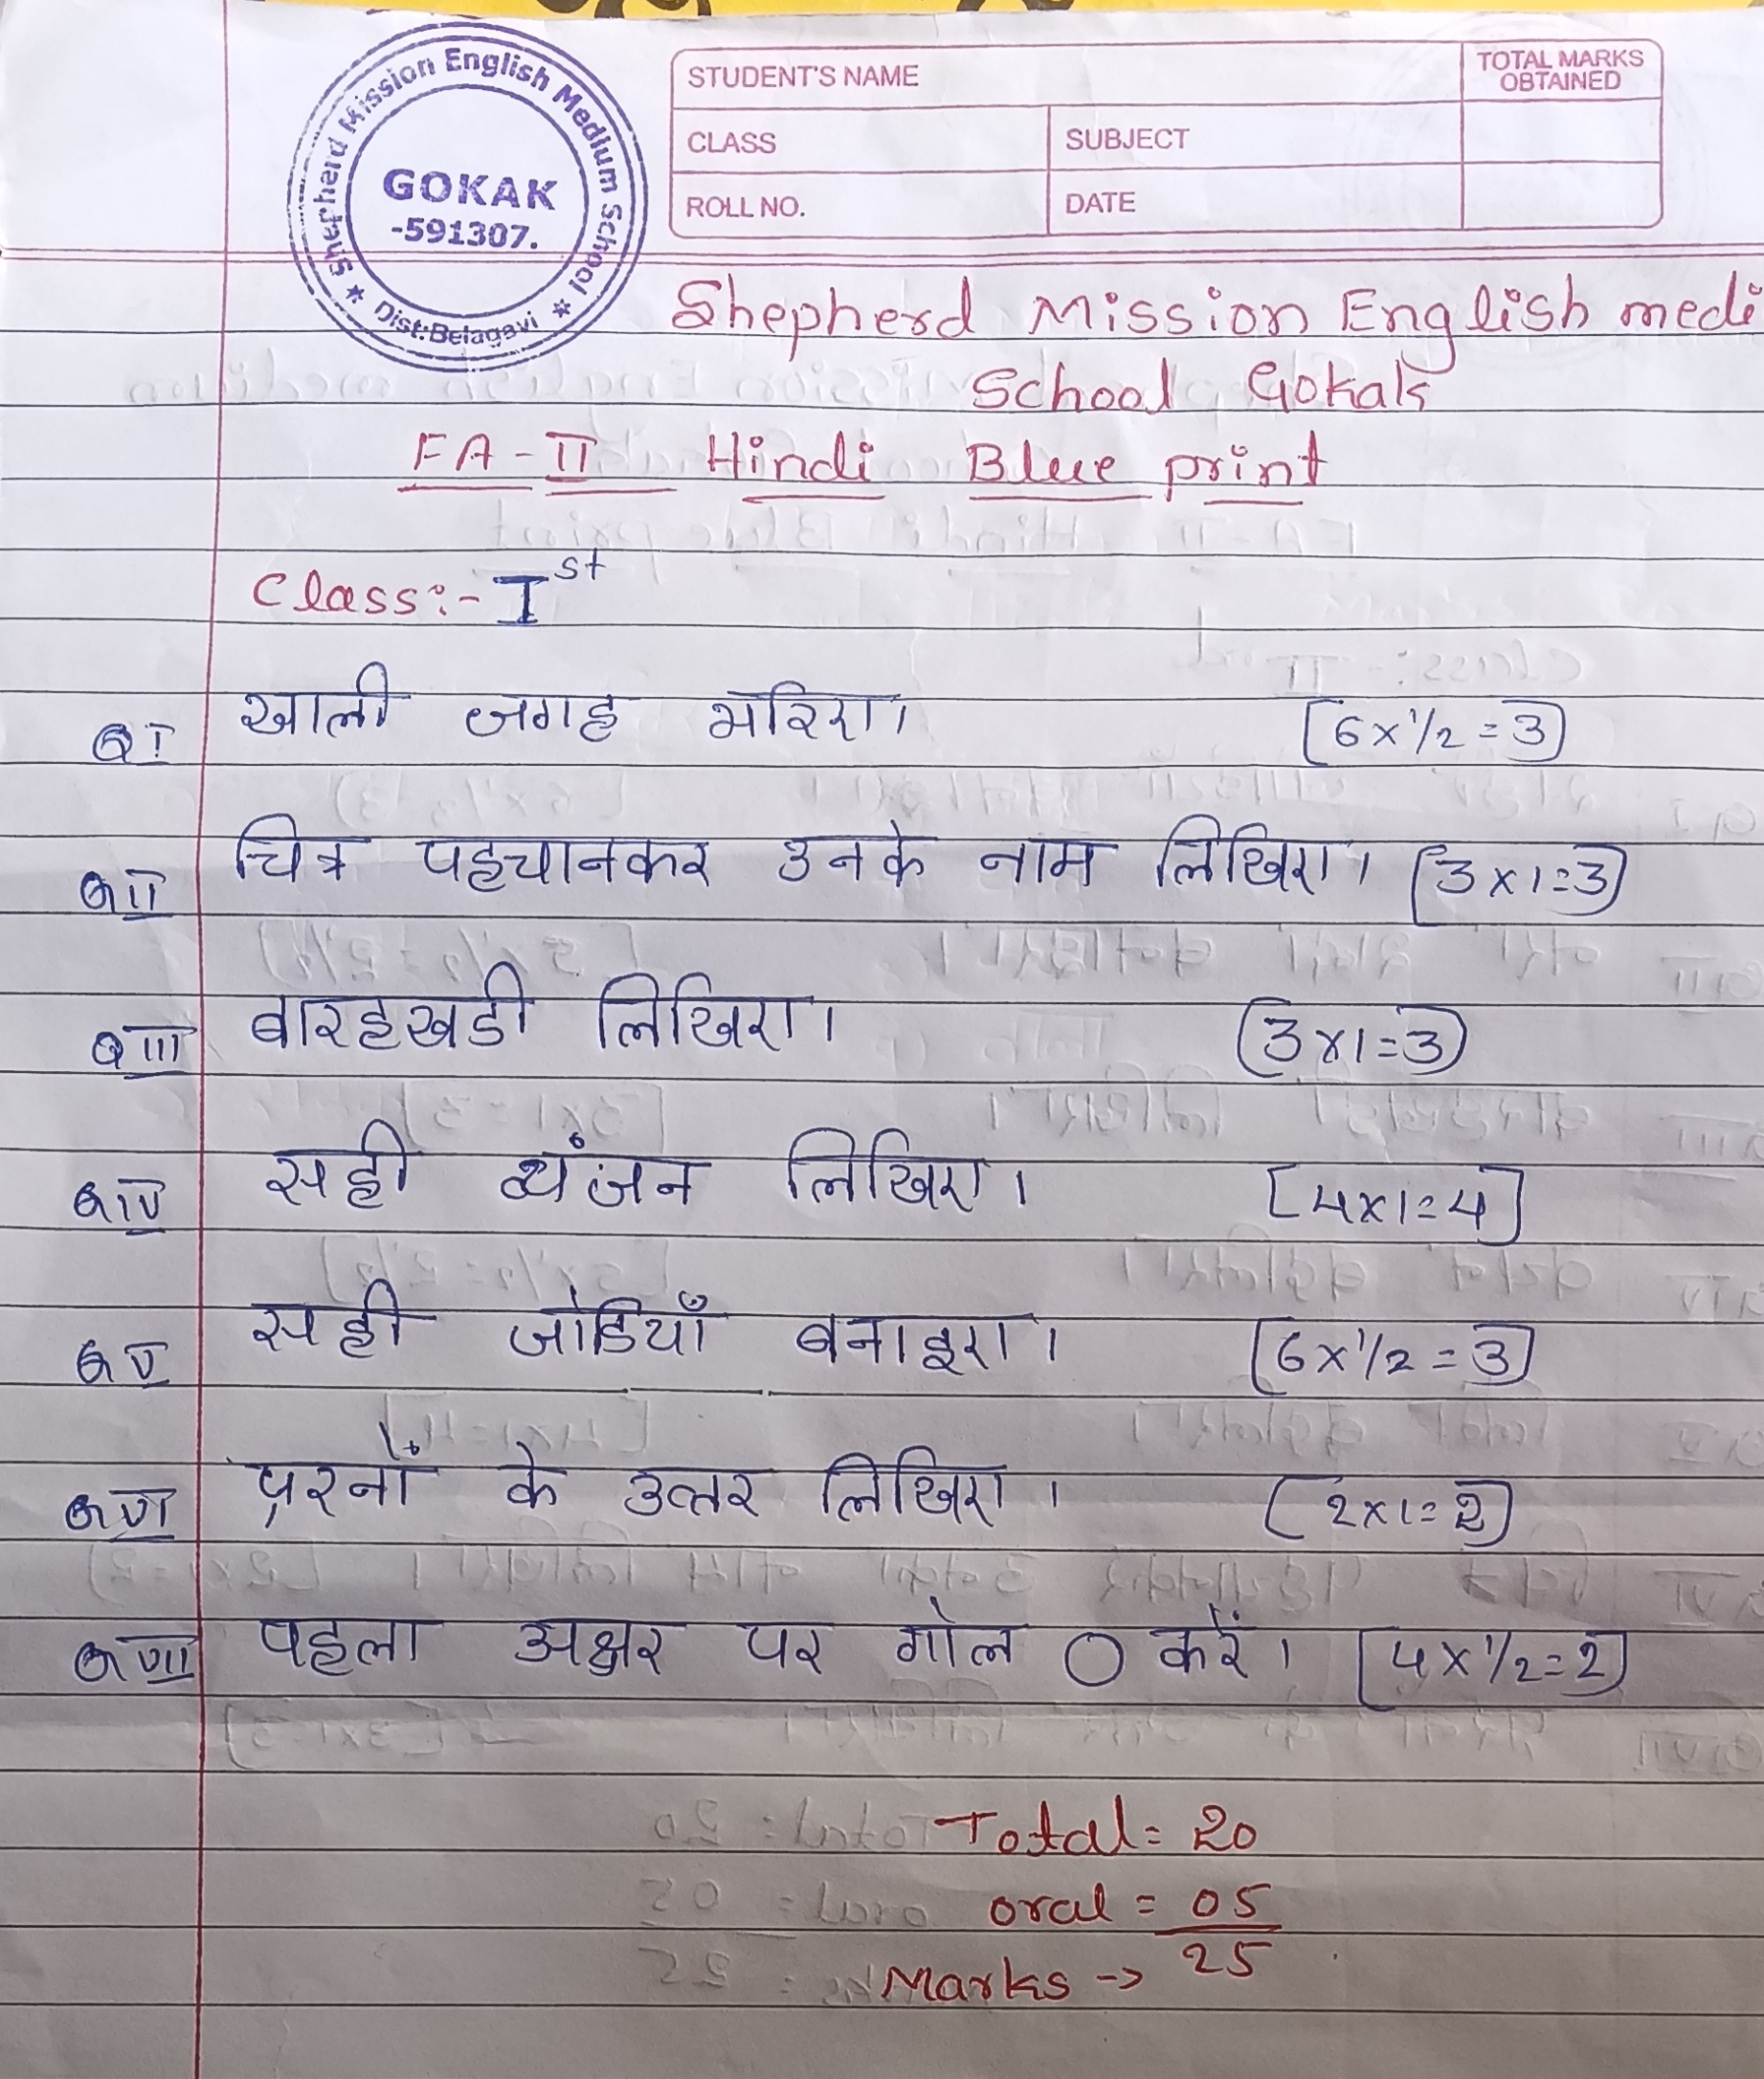 Shepherd Mission English Medium School
GOKAK
-591307.
Dist:Belagavi
STUDENT'S NAME
TOTAL MARKS
OBTAINED
CLASS
SUBJECT
ROLL NO.
DATE
Shepherd Mission English medi
School Gokak
FA-II Hindi Blue print
Class:- Ist
Q I खाली जगह भरिए। [6x1/2=3]
Q II चित्र पहचानकर उनके नाम लिखिए। [3x1=3]
Q III बारहखडी लिखिए। (3x1=3)
Q IV सही व्यंजन लिखिए। [4x1=4]
Q V सही जोडियाँ बनाइए। [6x1/2=3]
Q VI प्रश्नों के उत्तर लिखिए। [2x1=2]
Q VII पहला अक्षर पर गोल O करें। [4x1/2=2]
Total= 20
oral = 05
Marks -> 25